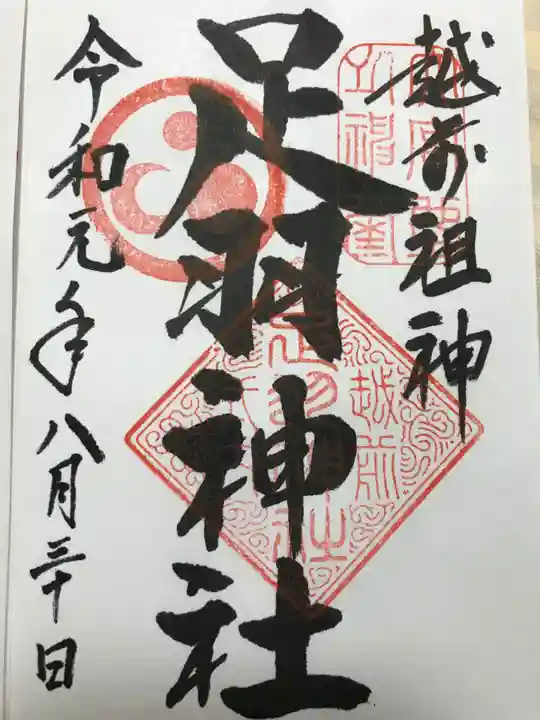 越前祖神
足羽神社
令和元年八月三十日
越前